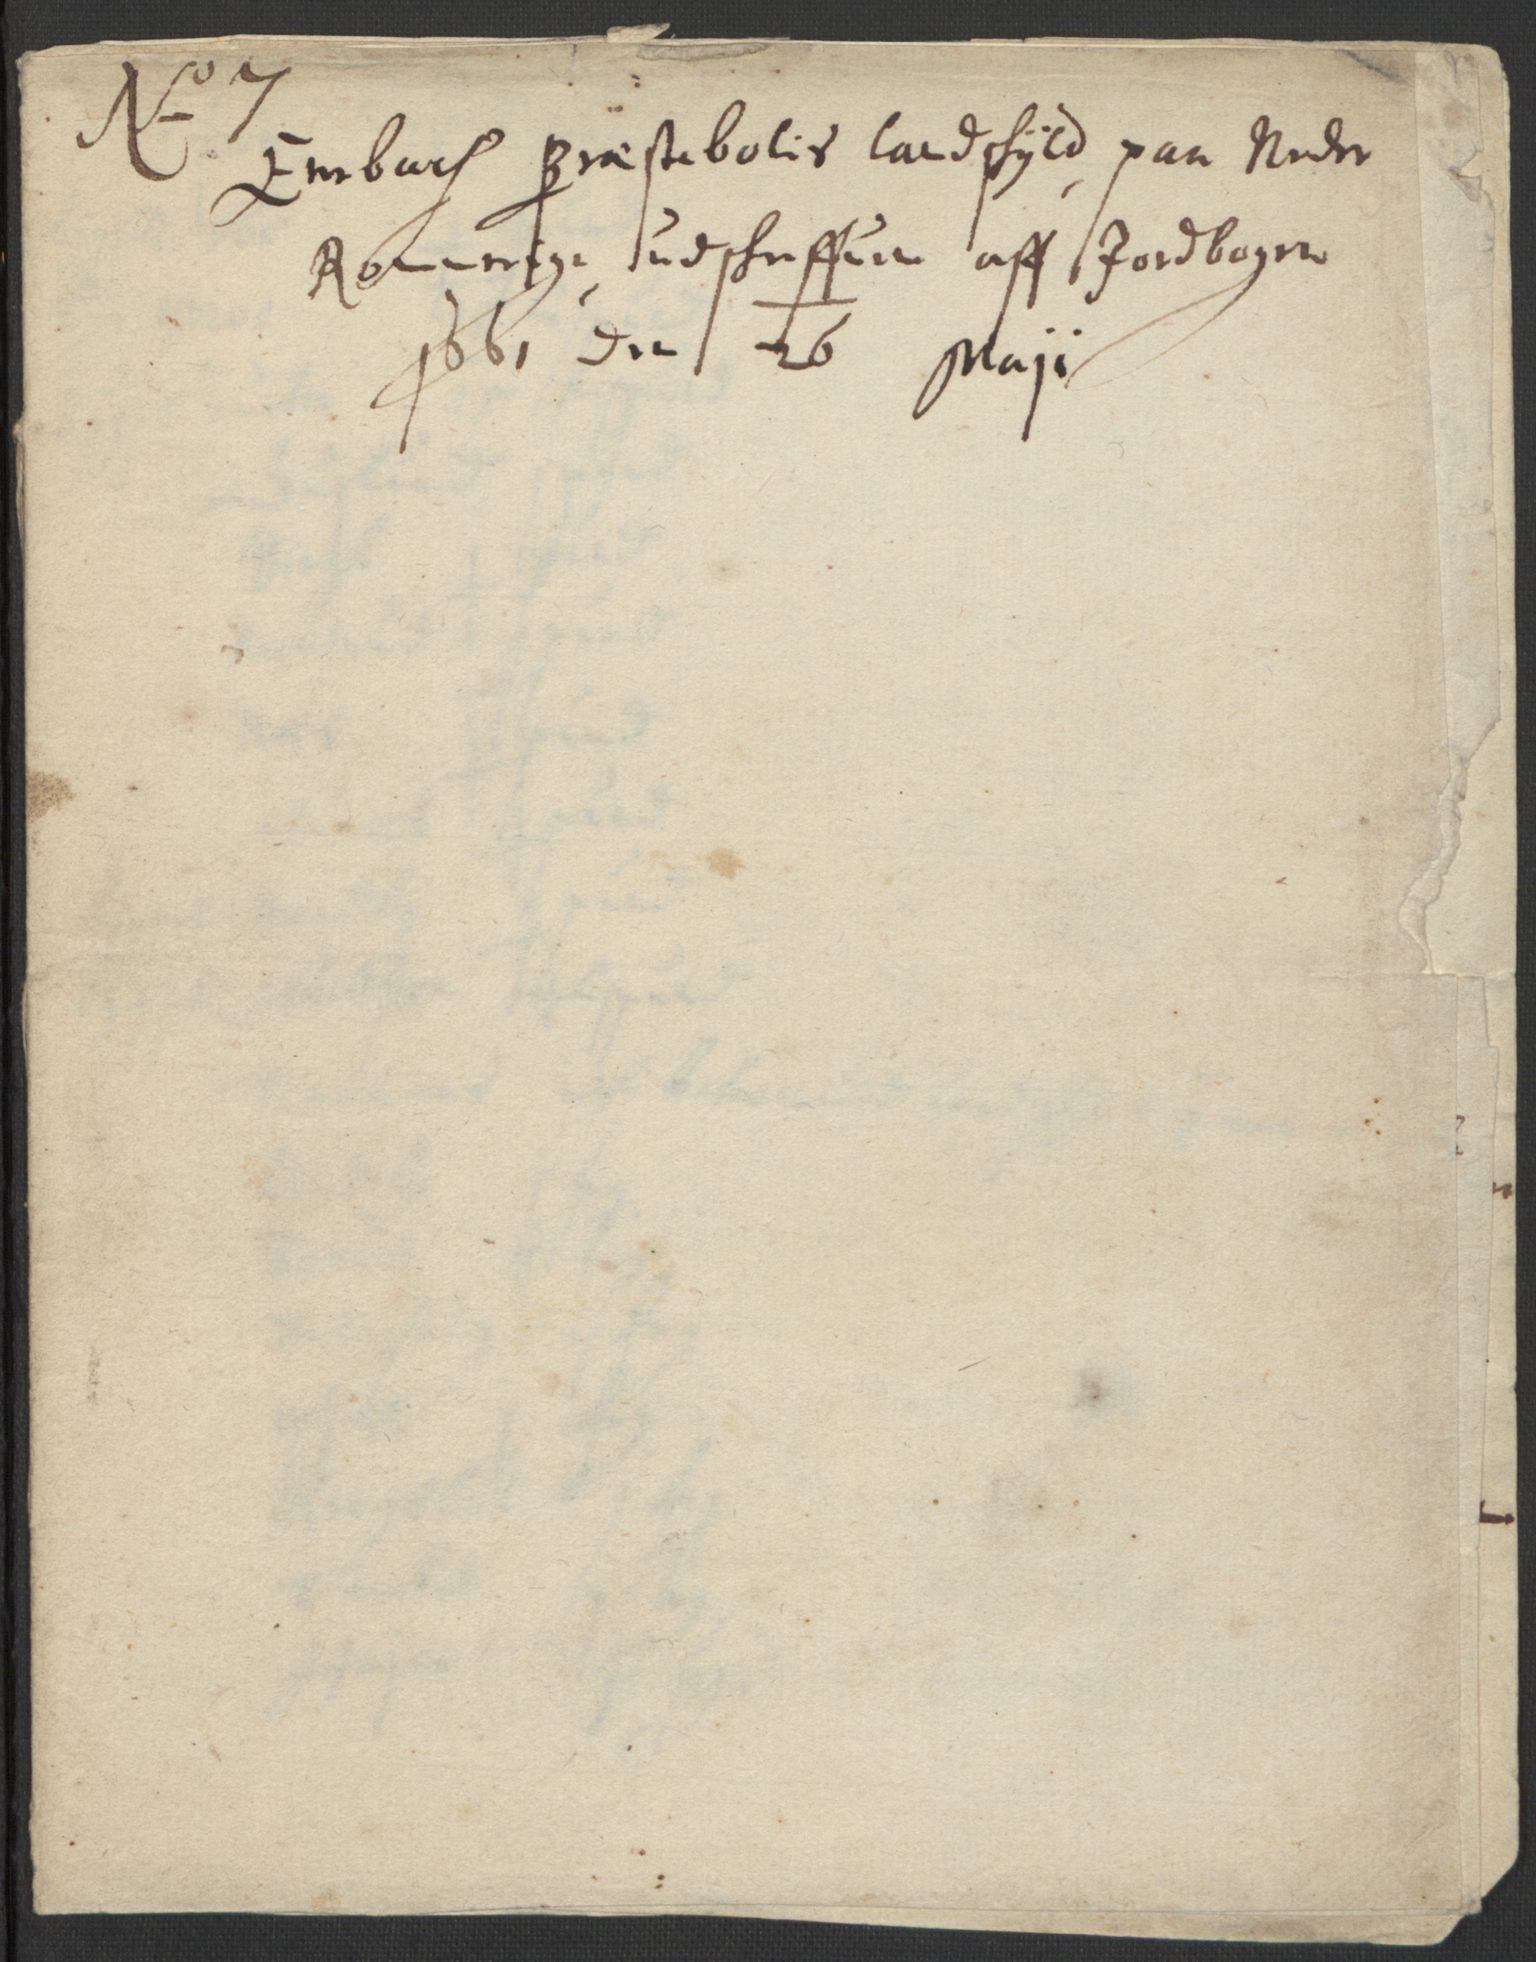 No 7
Enebach Præstebolis landschÿld paa Neder
Rommerige udschriffuen aff Jordbogen
1661 den 26 Maji